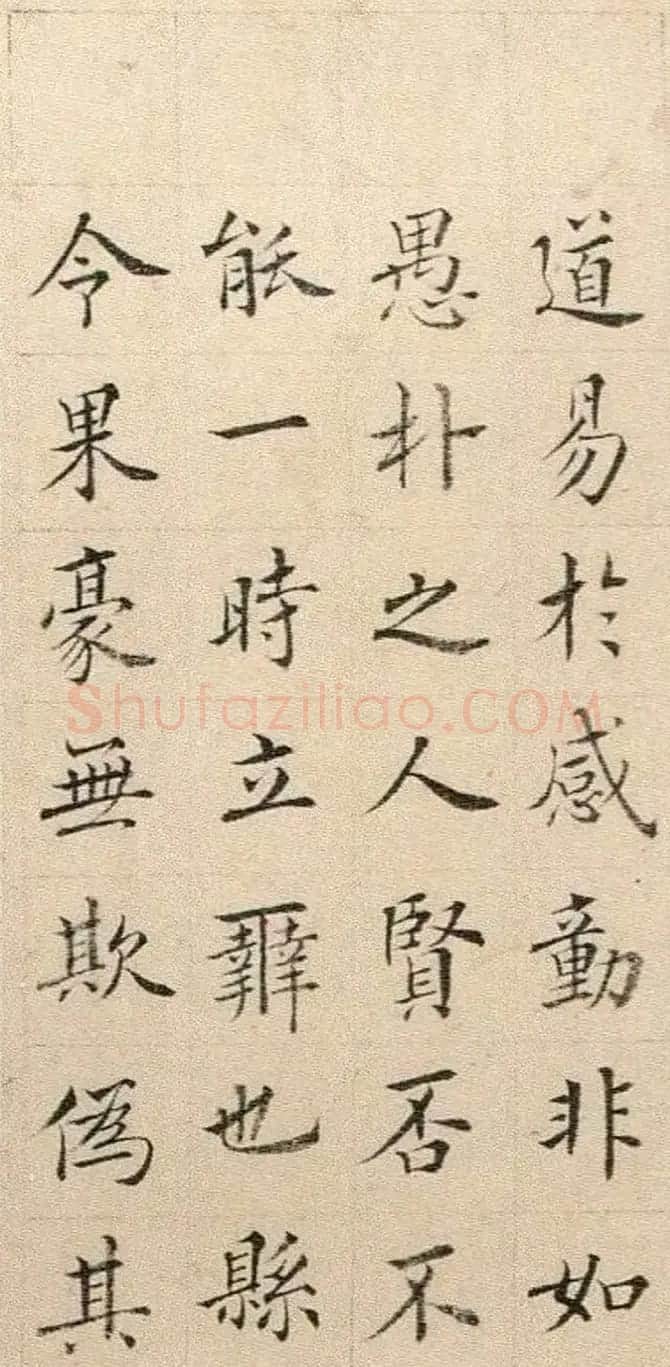 道易於感動非如
愚朴之人賢否不
能一時立辨也縣
令果豪無欺偽其
Shufaziliao.COM